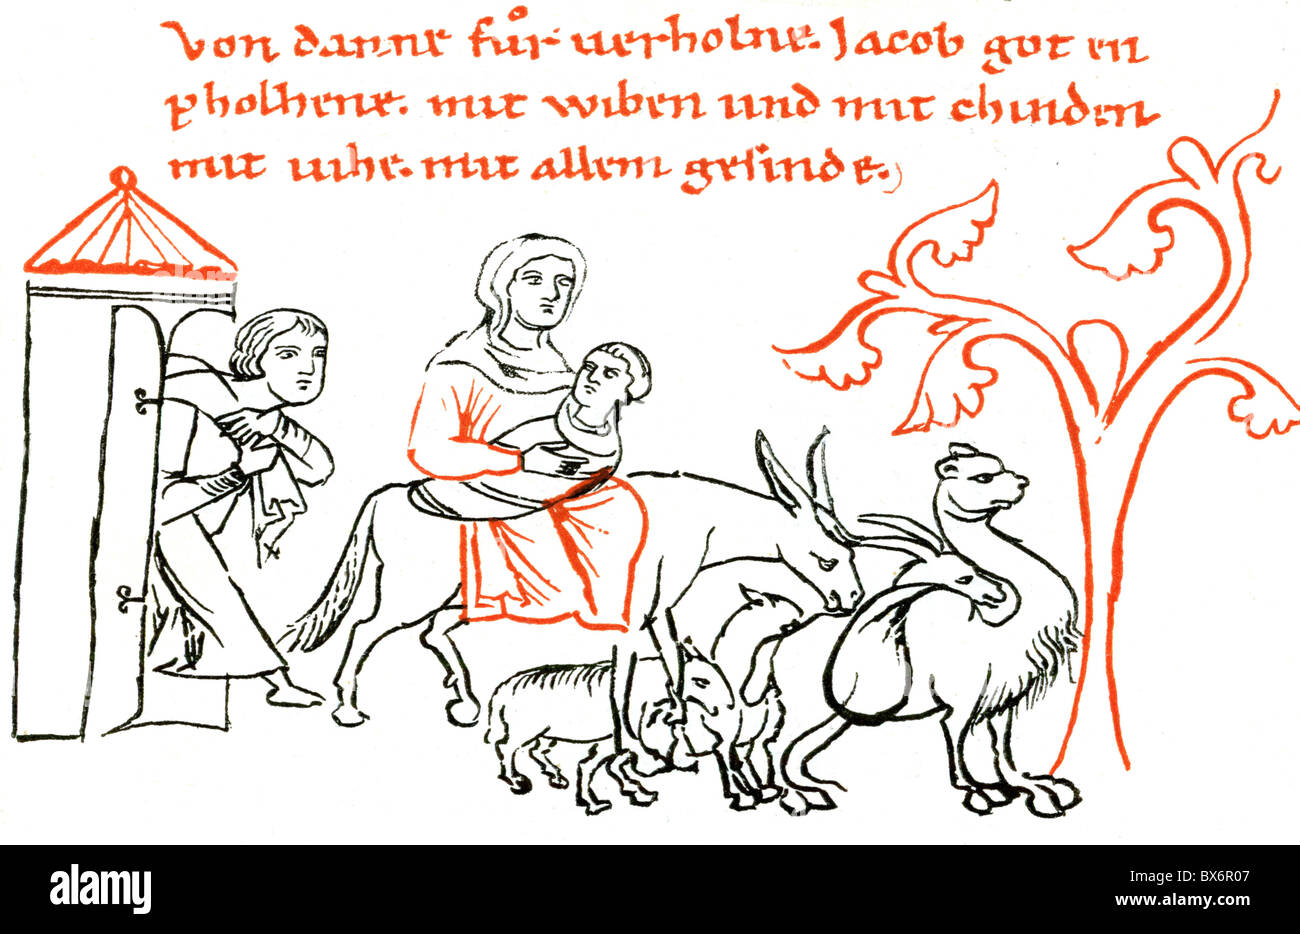 Von danne fůr verholne. Jacob got en
pholhene. mit wiben und mit chinden
mit vihe. mit allem gesinde.
alamy
Image ID: BX6R07
www.alamy.com